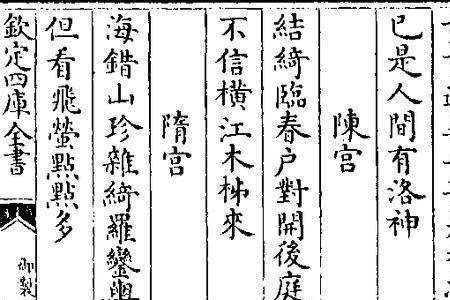 已是人間有洛神
陳宫
結綺臨春户對開後庭
不信横江木柹來
隋宫
海錯山珍雜綺羅鑾輿
但看飛螢點點多
欽定四庫全書
御製